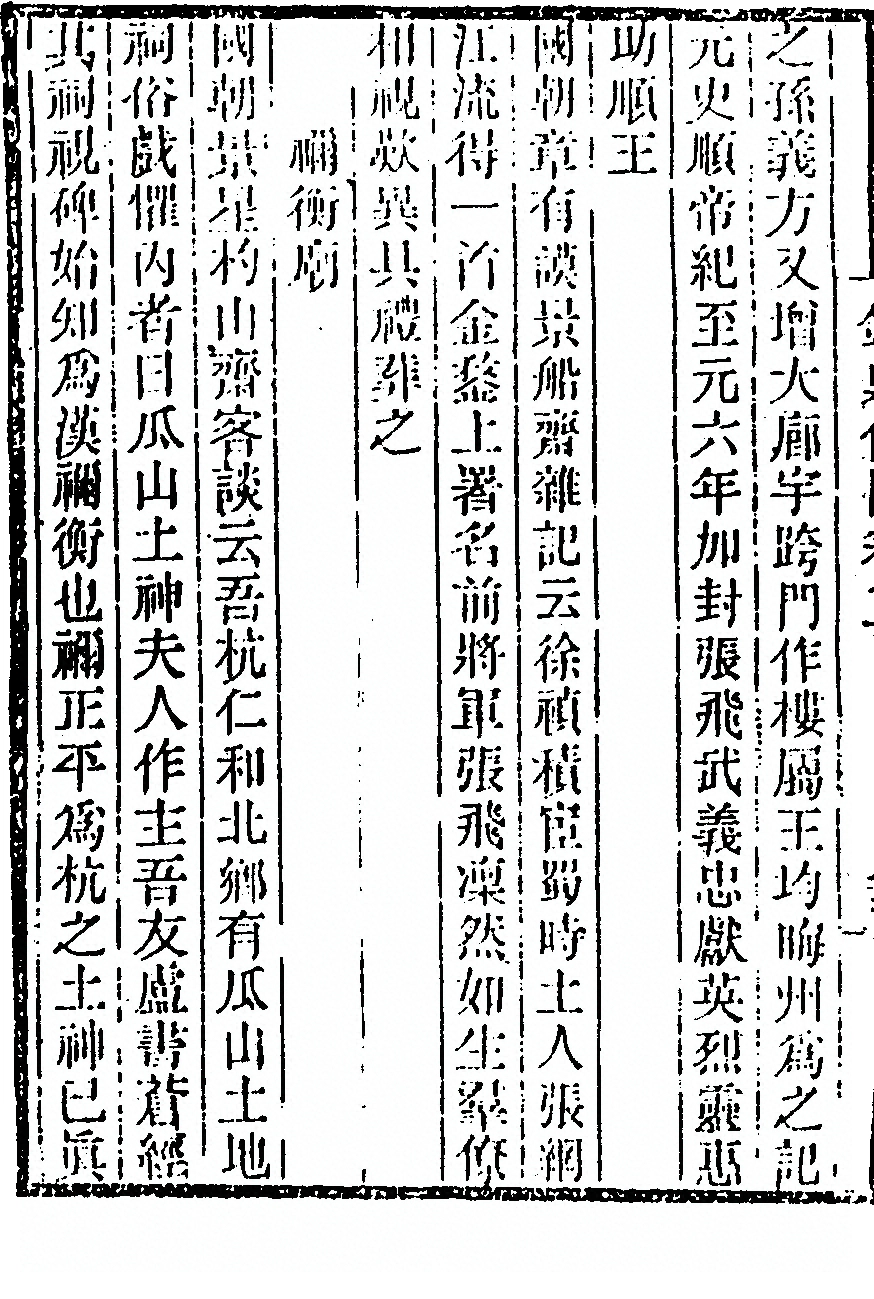 之孫義方又增大廊宇跨門作樓屬王均晦州為之記
元史順帝紀至元六年加封張飛武義忠獻英烈靈惠
助順王
國朝章有謨景船齋雜記云徐禎稷宦蜀時土人張網
江流得一首金鍪上署名前將軍張飛凜然如生羣僚
相視歎異具禮葬之
禰衡廟
國朝景星杓山齋客談云吾杭仁和北鄉有瓜山土地
祠俗戲懼內者曰瓜山土神夫人作主吾友盧書蒼經
其祠視碑始知為漢禰衡也禰正平為杭之土神已眞